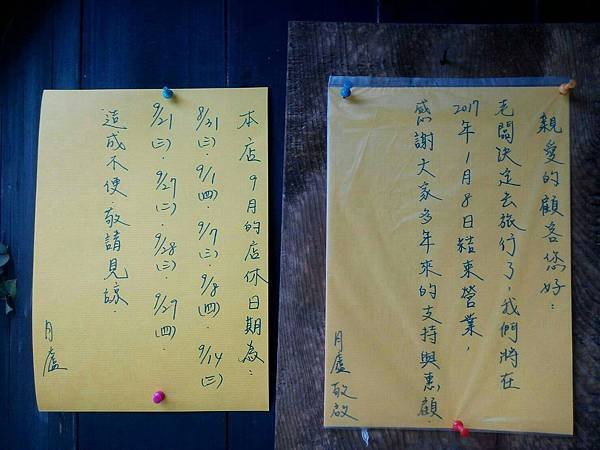 本店9月的店休日期為：
8/31(三)．9/1(四)．9/7(三)．9/8(四)．9/14(三)
9/21(三)．9/27(二)．9/28(三)．9/29(四)．
造成不便．敬請見諒．
月廬
親愛的顧客您好：
老闆決定去旅行了，我們將在
2017年1月8日結束營業，
感謝大家多年來的支持與惠顧．
月廬敬啟